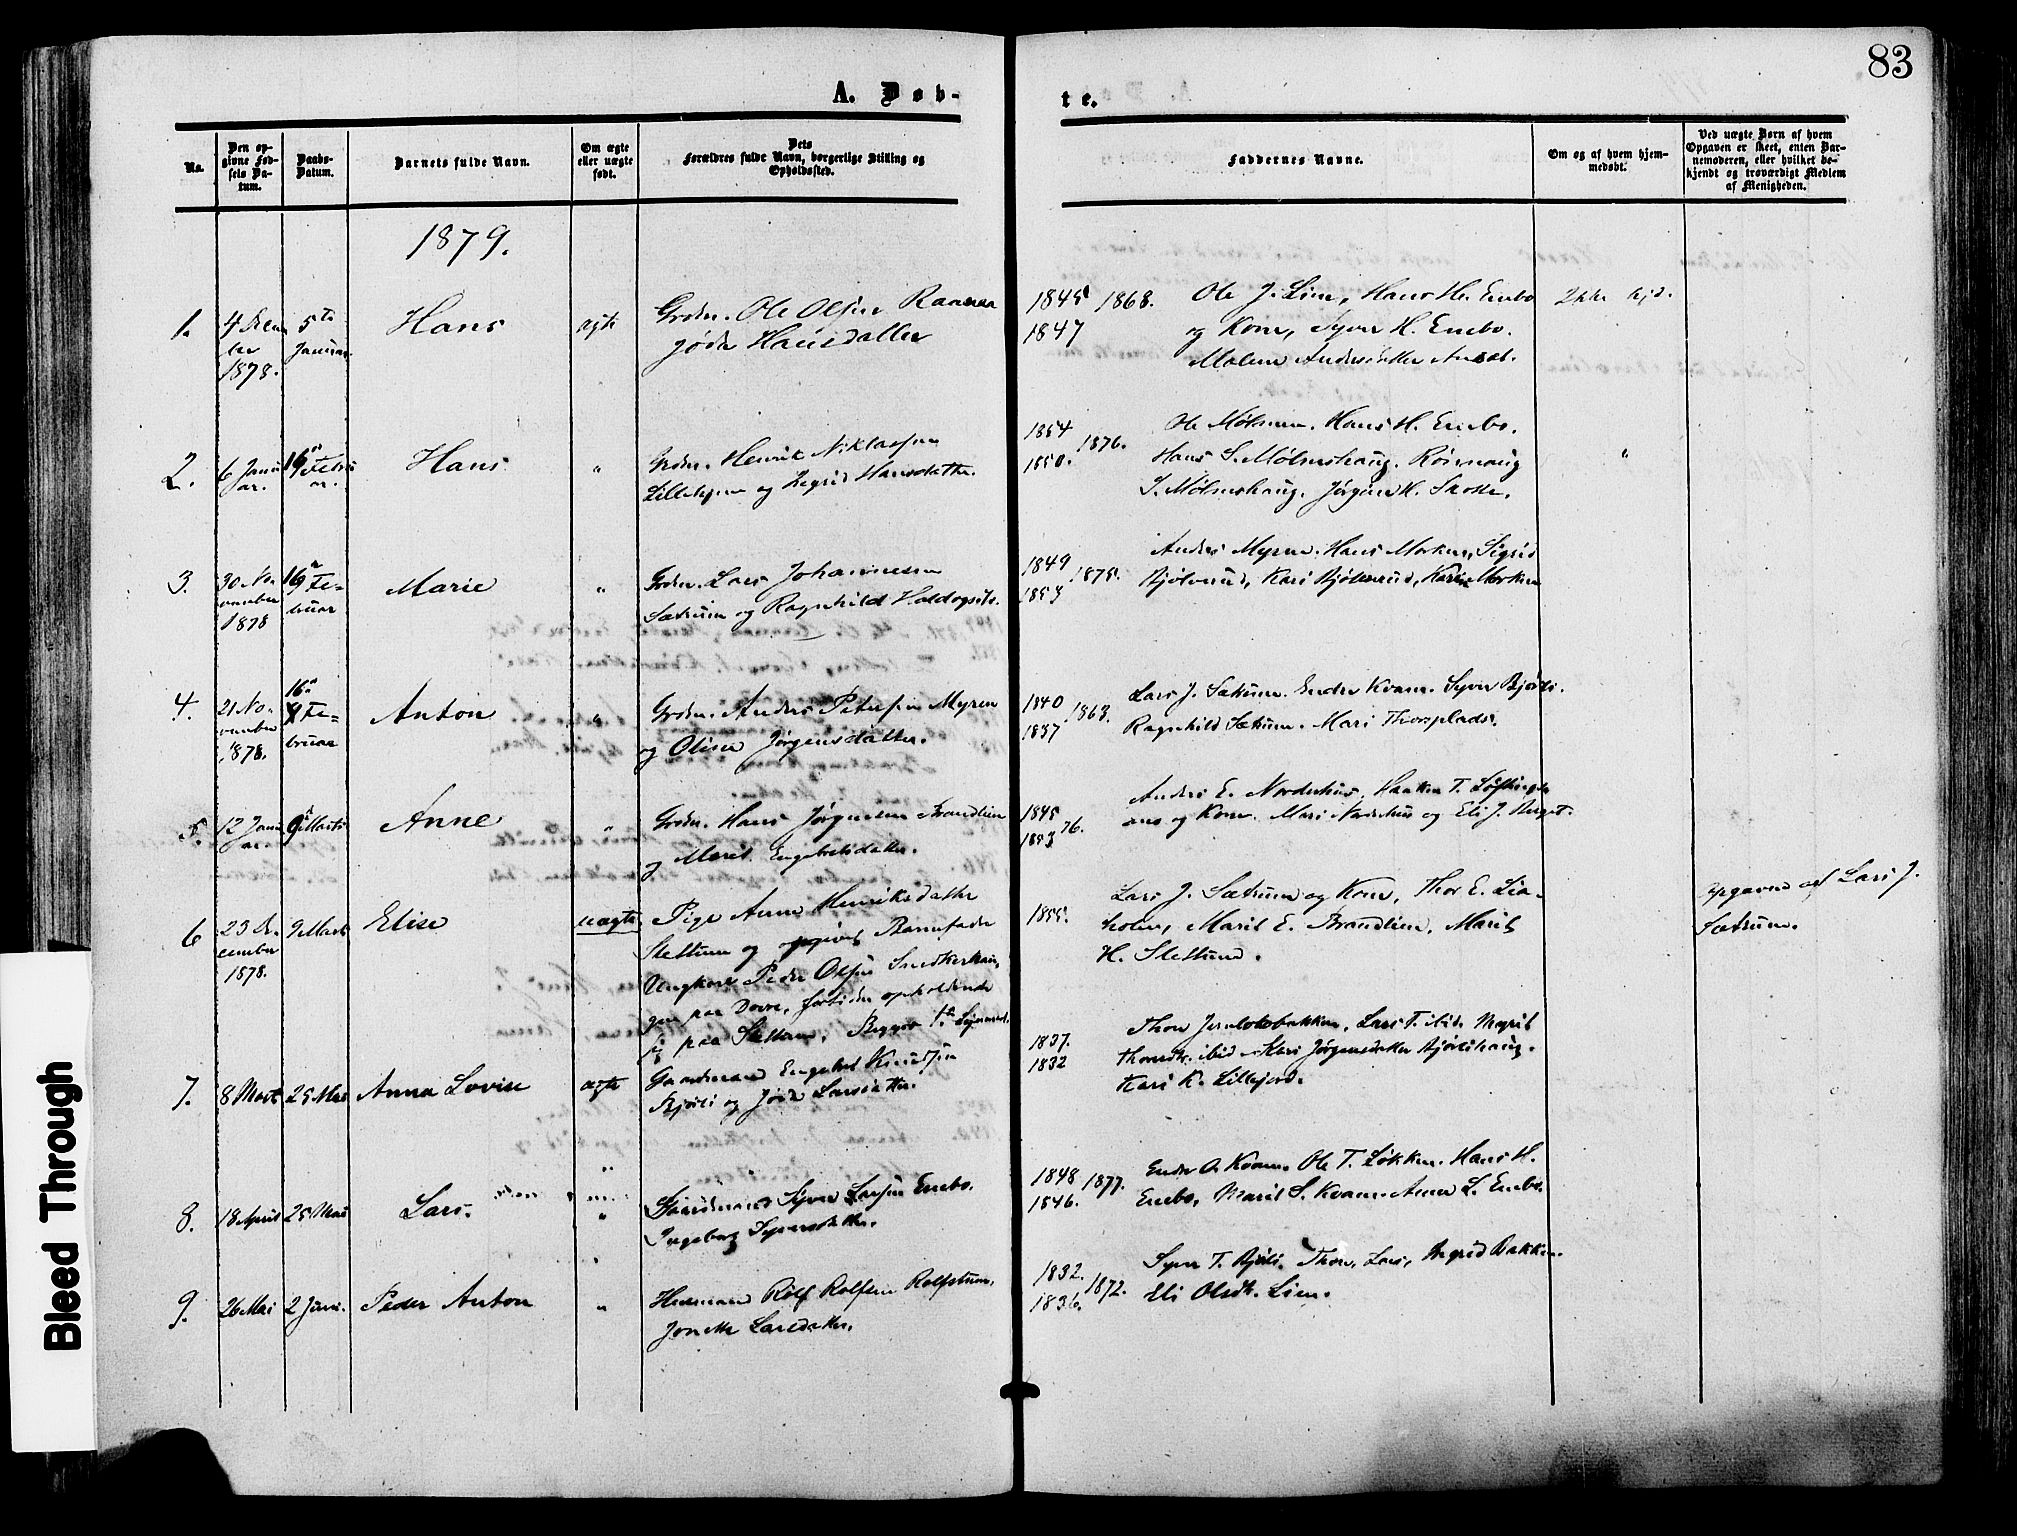 83
A. Døb-
te.
No.
Den op-
givne Fød-
sels Da-
tum.
Daabs-
Datum.
Barnets fulde Navn.
Om ægte
eller uægte
født.
Dets
Forældres fulde Navn, borgerlige Stilling og
Opholdssted.
Faddernes Navne.
Om og af hvem hjem-
medøbt.
Ved uægte Børn af hvem
Opgaven er skeet, enten Bar-
nemoderen, eller hvilket be-
kjendt og troværdigt Medlem
af Menigheden.
1879.
1.
1878.
5te
Januar
Hans
ægte
Ole Olsen Raanaa
Hansdatter
1845 1868.
1847
Ole J. Lien, Hans H. Enebo
og Kone, Syver H. Enebo.
Ikke hjd.
2.
6 Janu
ar.
16
Hans
"
Grdm. Henrik Niklassen
og Sigrid Hansdatter.
1854
1850.
1876.
Hans H. Enebo.
Hans S. Mølmshaug.
S. Mølmshaug. Jørgine H.
"
3.
30 No-
vember
1878
16 Fe-
bruar
Marie
"
Grdm. Lars Johannesen
Sætrum og Ragnhild
1849
1853
1875.
Anders Myren. Hans Morken, Sigrid
Kari Morken
4.
21 No-
vember
1878.
16
Fe-
bruar
Anton
"
Grdm. Anders Petersen Myren
og Oline Jørgensdatter.
1840
1837
1863.
Lars J. Sætrum. Endre Kvam. Syver Bjørli.
Ragnhild Sætrum. Mari Thorsplads.
5.
12 Janu
ar.
9 Marts
Anne
"
Grdm. Hans Jørgensen Brandlien
og Marit Engebretsdatter.
1845
1853
76.
Anders E. Norderhus, Haaken T.
og Kone. Mari Norderhus og Eli J. Berget.
6
23 De-
cember
1878.
9 Marts
Elise
uægte
Pige Anne Henriksdatter
Slettum og opgiven Barnefader
Ungkarl Peder Olsen
paa Dovre, for tiden opholdende
sig paa Slettum.
1855.
Lars J. Sætrum og Kone, Thor E. Lia-
Marit E. Brandlien, Marit
H. Slettum.
opgaven af Lars J.
Sætrum.
7.
8 Marts
25 Mai
Anna Lovise
ægte
Gaardmand Engebret Knudsen
Bjørli og Jøda Larsdatter.
1837.
1832
Thor Jernlokbakken, Lars T. ibid. Marit
Thorsdtr. ibid. Mari Jørgensdatter Bjørlihaug.
Kari K.
8.
18 April
25 Mai
Lars.
"
Gaardmand Syver Larsen Enebo.
Ingeborg Syversdatter.
1848
1846.
1877.
Endre O. Kvam. Ole T. Løkken. Hans H.
Enebo, Marit S. Kvam. Anne L. Enebo.
9.
26 Mai
2 Juni.
Peder Anton
"
Rolf Rolfsen Rolfstuen.
Jonette Larsdatter.
1832.
1836.
1872.
Syver T. Bjørli. Thor, Lars, Ingrid Bakken.
Eli Olsdtr. Lien.
Bleed Through